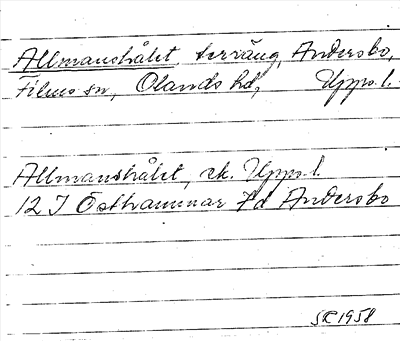 Allmanshålet, terräng, Andersbo,
Films sn, Olands hd, Upps. l.
Allmanshålet, ek. Upps. l.
12 I Östhammar 7d Andersbo
SR 1958